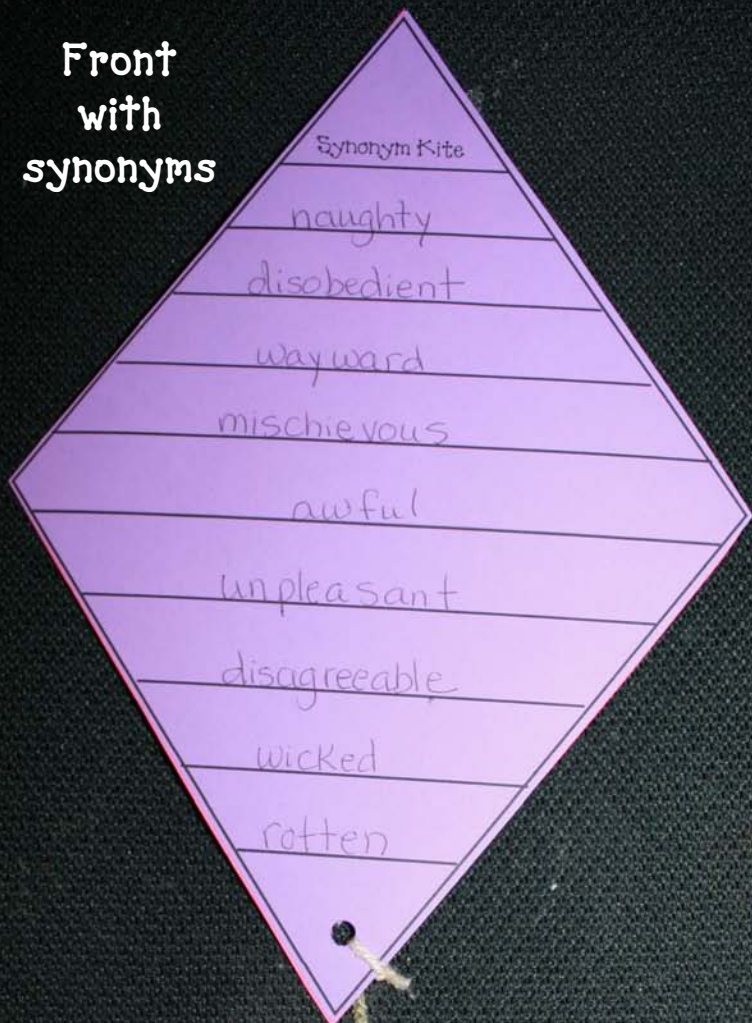 Front
with
synonyms
Synonym Kite
naughty
disobedient
wayward
mischievous
awful
unpleasant
disagreeable
wicked
rotten